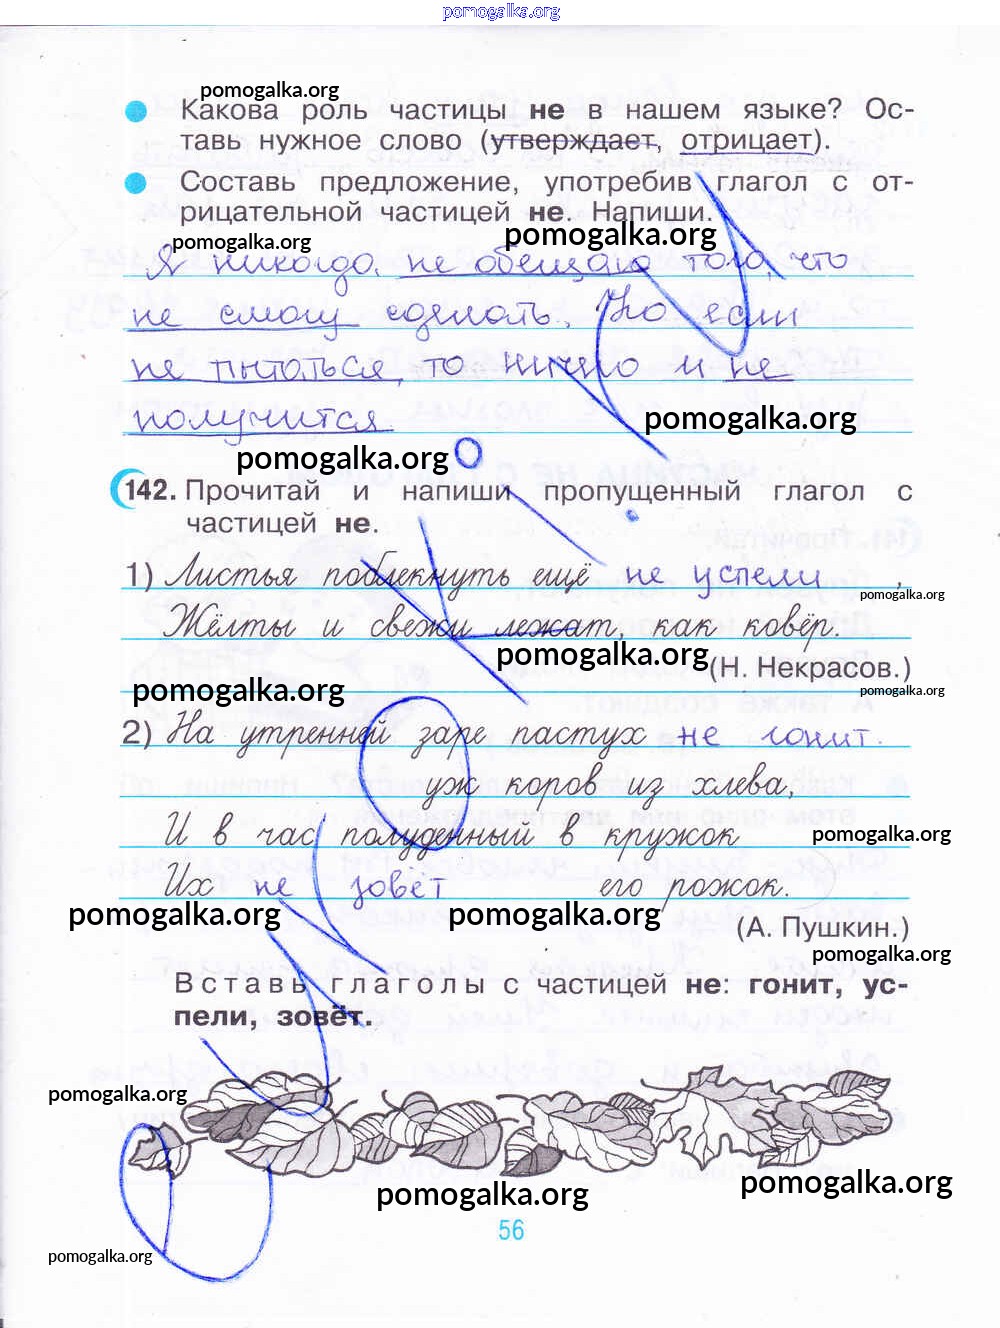 pomogalka.org
pomogalka.org
Какова роль частицы не в нашем языке? Ос-
тавь нужное слово (утверждает, отрицает).
Составь предложение, употребив глагол с от-
рицательной частицей не. Напиши.
pomogalka.org pomogalka.org
Я никогда не обещаю того, что
не смогу сделать. Но если
не пытаться, то ничего и не
получится.
pomogalka.org
pomogalka.org
142. Прочитай и напиши пропущенный глагол с
частицей не.
1) Листья поблекнуть ещё не успели ,
pomogalka.org
Жёлты и свежи лежат, как ковёр.
pomogalka.org
(Н. Некрасов.)
pomogalka.org pomogalka.org
2) На утренней заре пастух не гонит.
уж коров из хлева,
И в час полуденный в кружок
pomogalka.org
Их не зовёт его рожок.
pomogalka.org pomogalka.org
(А. Пушкин.)
pomogalka.org
Вставь глаголы с частицей не: гонит, ус-
пели, зовёт.
pomogalka.org
pomogalka.org pomogalka.org
56
pomogalka.org